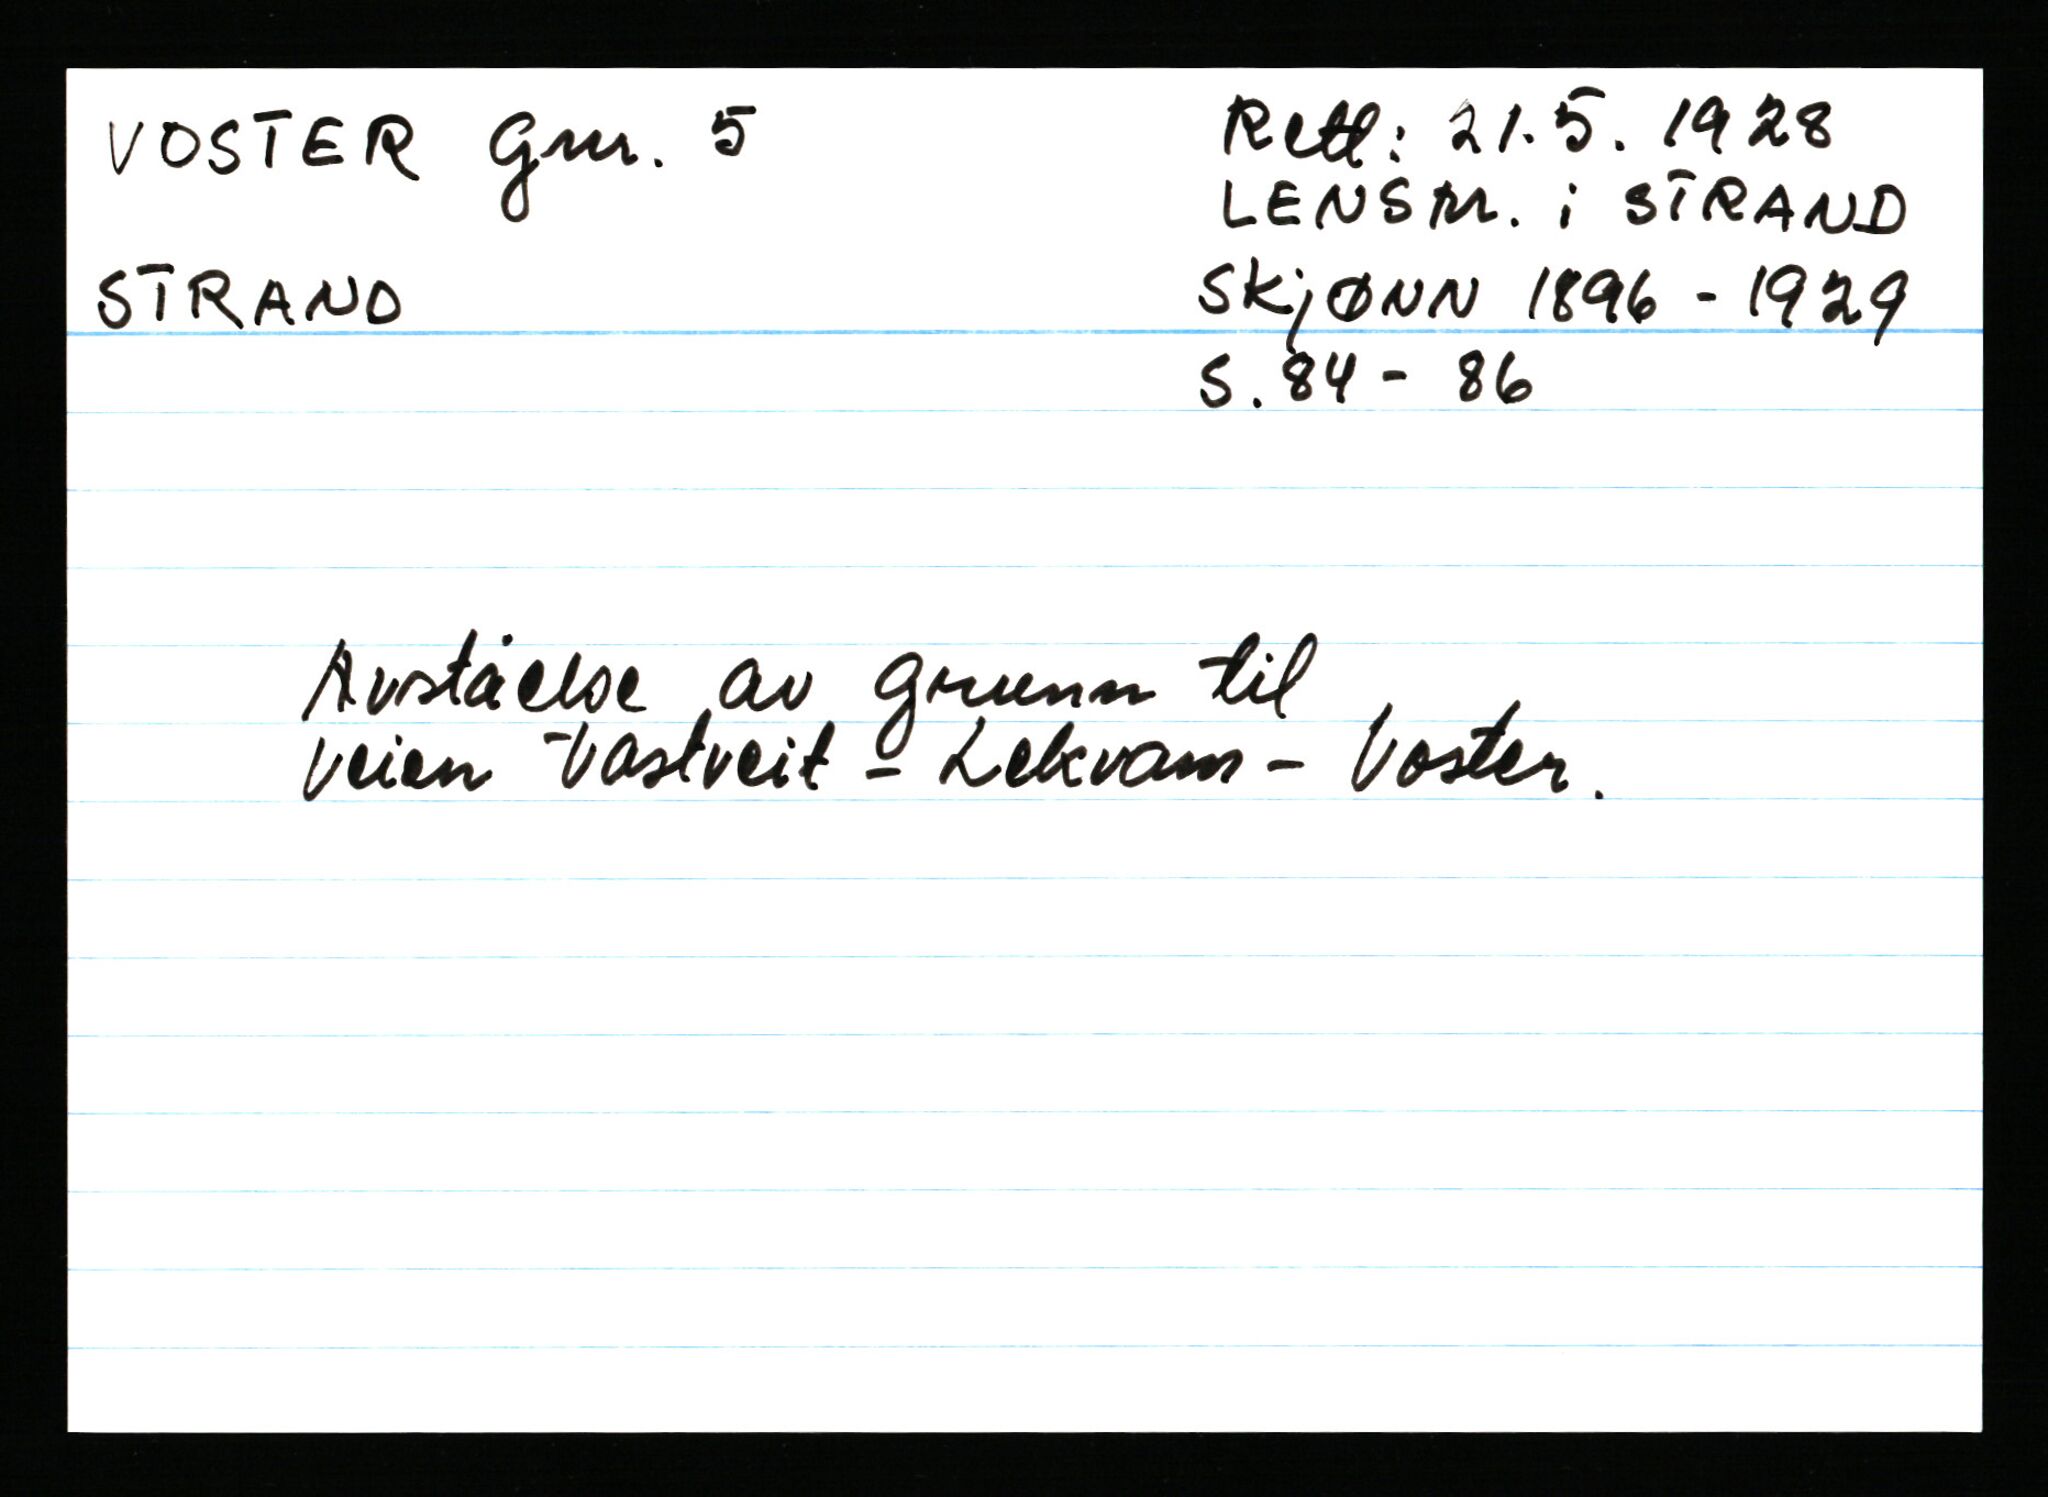 VOSTER Gnr. 5
STRAND
Rett: 21.5.1928
LENSM. i STRAND
SKJØNN 1896 - 1929
S. 84 - 86
Avståelse av grunn til
veien Vastveit - Lekvam - Voster.